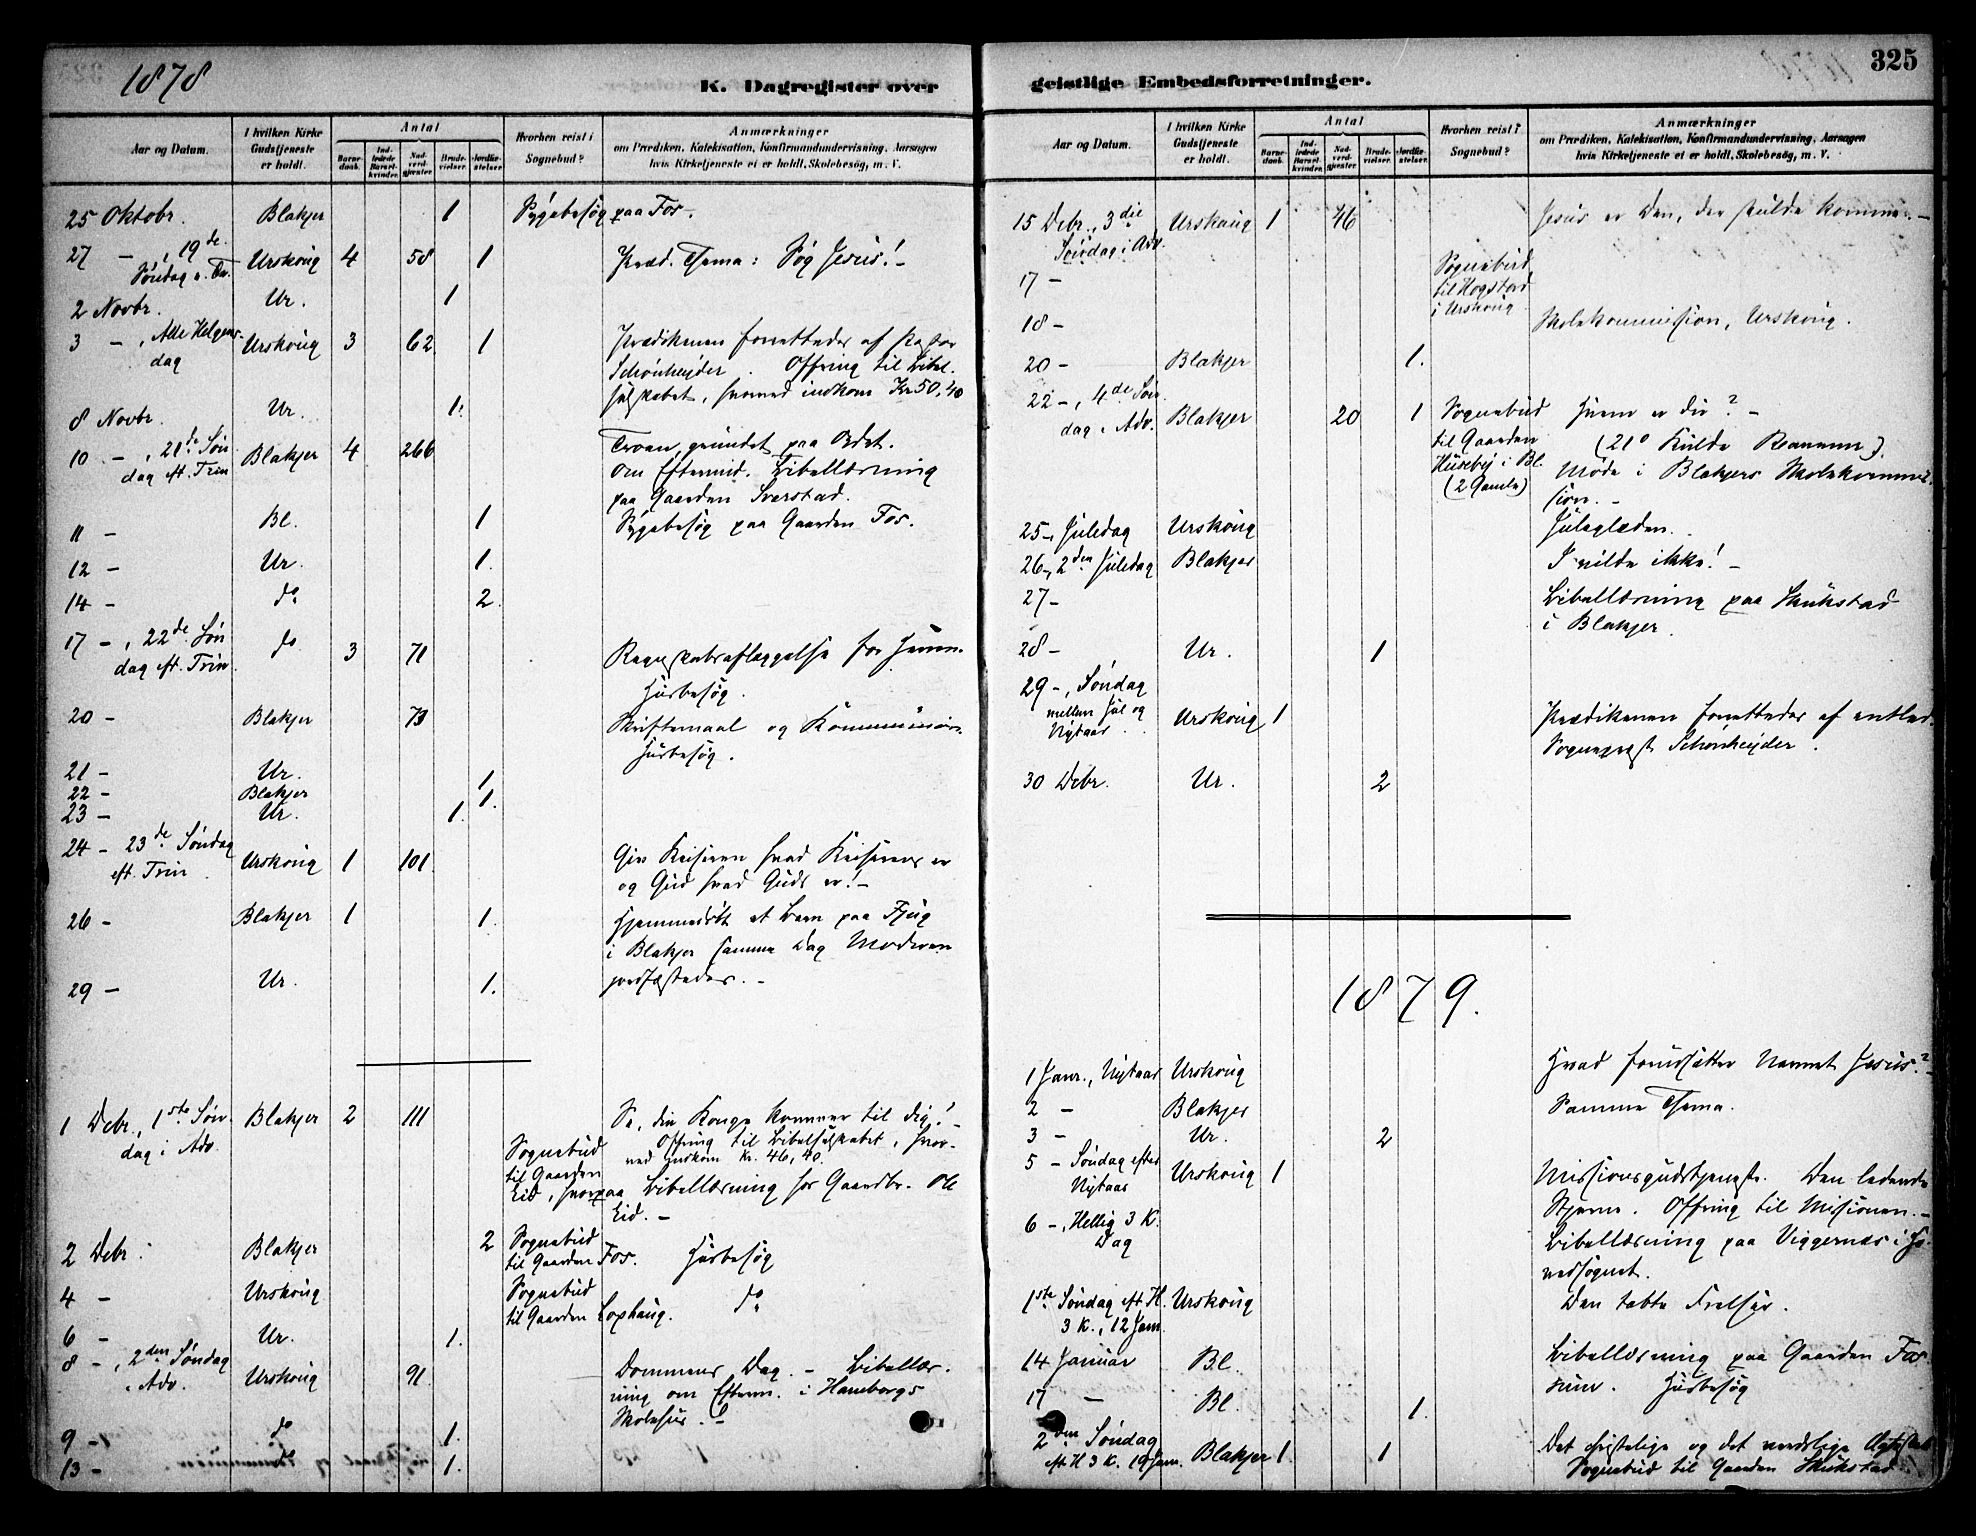 1878
K. Dagregister over
Aar og Datum.
I hvilken Kirke Gudstjeneste er holdt.
Antal
Barnedaab.
Indledede Barselkvinder.
Nadverdgjæster.
Brudevielser.
Jordfæstelser.
Hvorhen reist i Sognebud?
Anmærkninger
om Prædiken, Katekisation, Konfirmandundervisning, Aarsagen
hvis Kirketjeneste ei er holdt, Skolebesøg, m. V.
25 Oktobr. Blakjer 1 Sygebesøg paa Fos.
27 – , 19de Søndag e. Tr. Urskoug 4 58 1 Præd. Thema: Søg Jesus! –
2 Novbr. Ur. 1
3 – , Alle Helgens- Urskoug 3 62 1 Prædikenen forrettedes af Pastor
dag Schønheyder. Offring til Bibel-
selskabet, hvorved indkom Kr 50,40
8 Novbr. Ur. 1.
10 – , 21de Søn Blakjer 4 266 Troen, grundet paa Ordet.
dag eft. Trin Om Eftermid. Bibellæsning
paa Gaarden Sverstad.
11 – Bl. 1 Sygebesøg paa Gaarden Fos.
12 – Ur. 1.
14 – do 2.
17 – , 22de Søn do 3 71 Regnskabsaflæggelse for Herren.
dag eft. Trin. Husbesøg.
20 – Blakjer 73 Skriftemaal og Kommunion.
Husbesøg.
21 – Ur. 1
22 – Blakjer 1.
23 – Ur. 1.
24 – 23de Søndag Urskoug 1 101 Giv Keiseren hvad Keiserens er
eft. Trin. og Gud hvad Guds er! –
26 – Blakjer 1 1. Hjemmedøbt et Barn paa Fjug
i Blakjer samme Dag Moderen
29 – Ur. 1. jordfæstedes. –
1 Debr., 1ste Søn- Blakjer 2 111 Se, din Konge kommer til dig! –
dag i Adv. Sognebud Offring til Bibelselskabet, hvor-
til Gaarden ved indkom Kr. 46,40.
Eid, hvorpaa Bibellæsning hos Gaardbr. Ole
Eid. –
2 Debr. Blakjer 2 Sognebud
til Gaarden Fos. Husbesøg
4 – Urskoug Sognebud
til Gaarden Lophaug. do
6 – Ur. 1.
8 – , 2den Søndag Urskoug 91. Dommens Dag. – Bibellæs-
i Adv. ning om Efterm. i Hamborgs
Skolehus. –
9 – do 1.
13 – do 1.
325
geistlige Embedsforretninger.
Aar og Datum.
I hvilken Kirke Gudstjeneste er holdt.
Antal
Barnedaab.
Indledede Barselkvinder.
Nadverdgjæster.
Brudevielser.
Jordfæstelser.
Hvorhen reist i Sognebud?
Anmærkninger
om Prædiken, Katekisation, Konfirmandundervisning, Aarsagen
hvis Kirketjeneste ei er holdt, Skolebesøg, m. V.
15 Debr., 3die Urskoug 1 46 Jesus er Den, der skulde komme. –
Søndag i Adv.
17 – Sognebud
til Hogstad
i Urskoug
18 – Skolekommission, Urskoug.
20 – Blakjer 1.
22 – , 4de Søn- Blakjer 20 1 Sognebud Hvem er du? –
dag i Adv. til Gaarden (21° Kulde Reaumur)
Husebÿ i Bl. Møde i Blakjers Skolekommis-
(2 Gamle) sion. –
25 –, Juledag Urskoug Juleglæden.
26 –, 2den Juledag Blakjer I vilde ikke! –
27 – Bibellæsning paa Skukstad
i Blakjer.
28 – Ur. 1
29 –, Søndag
mellem Jul og Urskoug 1 Prædikenen forrettedes af entled.
Nytaar. Sogneprest Schønheyder.
30 Debr. Ur. 2
1879.
1 Janr., Nytaar Urskoug Hvad forudsætter Navnet Jesus? –
2 – Blakjer Samme Thema.
3 – Ur. 2
5 – Søndag efter Urskoug 1 Missionsgudstjeneste. Den ledende
Nytaar Stjerne. Offring til Missionen. –
6 –, Hellig 3 K. Bibellæsning paa Viggernæs i Ho-
Dag vedsognet.
1ste Søndag eft H. Urskoug Den tabte Frelser.
3 K., 12 Jan.
14 Januar Bl. Bibellæsning paa Gaarden Fos
17 – Bl. 1. Husbesøg
2den Søndag
eft H 3 K. 19 Jan. Blakjer 1. 1 Det christelige og det verdslige
Sognebud til Gaarden Skukstad